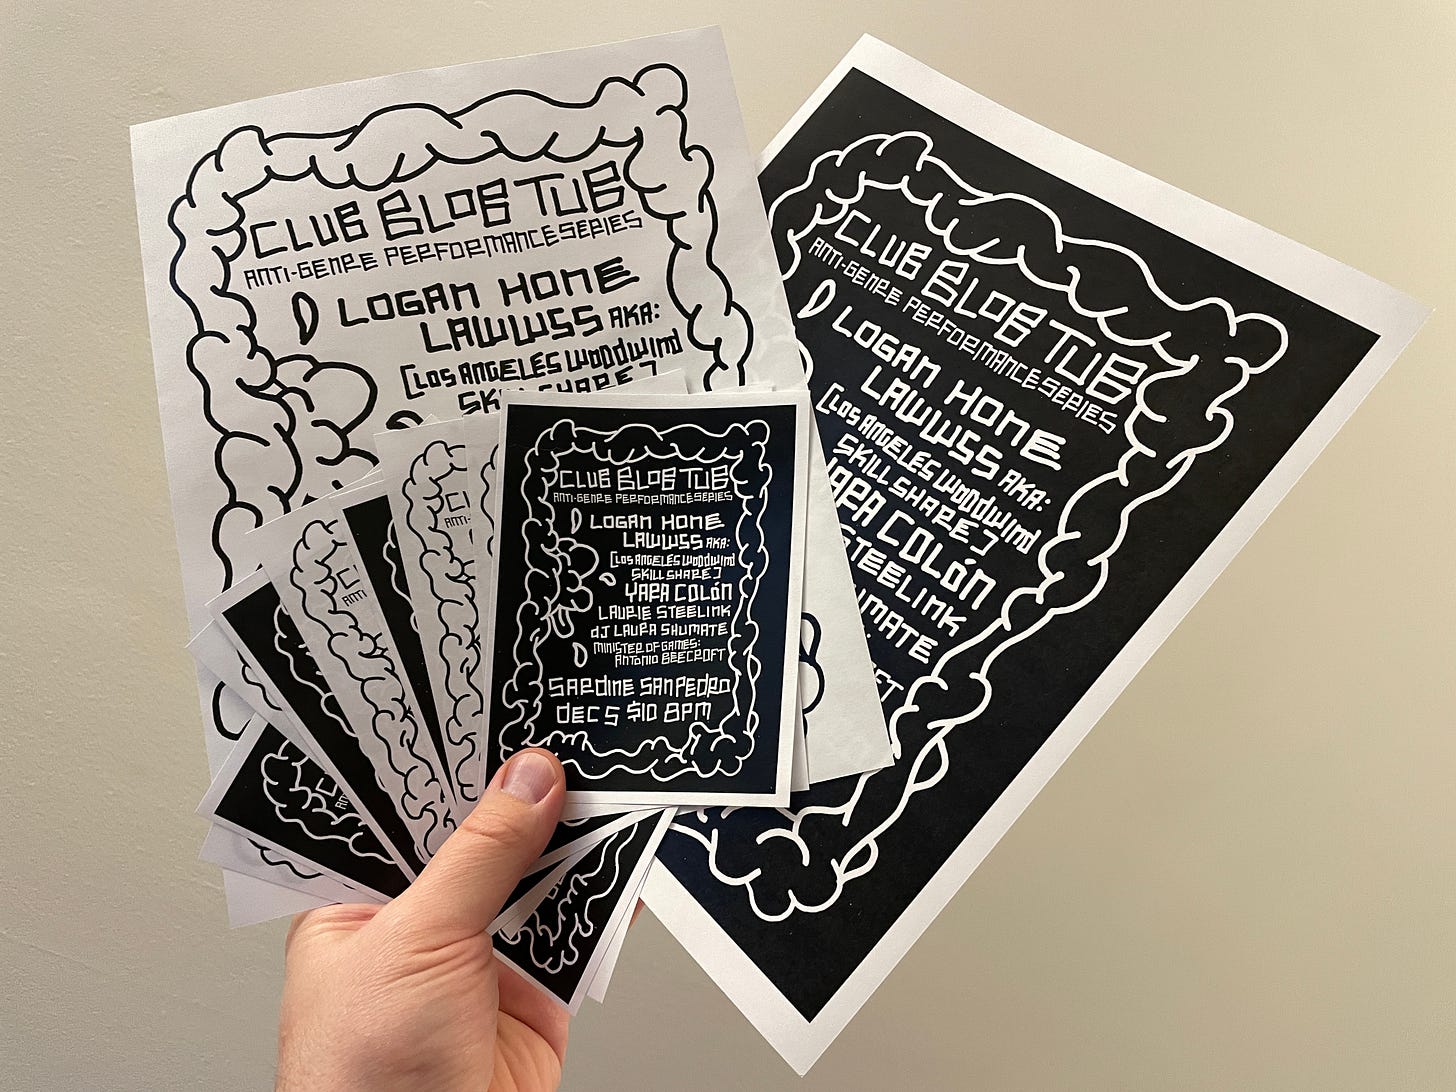 CLUB BLOB TUB
ANTI-GENRE PERFORMANCE SERIES
LOGAN HONE
LAWWSS AKA:
[LOS ANGELES WOODWIND
CLUB BLOB TUB
ANTI-GENRE PERFORMANCE SERIES
LOGAN HONE
LAWWSS AKA:
[LOS ANGELES WOODWIND
SKILLSHARE]
YAPA COLÓN
STEELINK
CLUB BLOB TUB
ANTI-GENRE PERFORMANCE SERIES
LOGAN HONE
LAWWSS AKA:
[LOS ANGELES WOODWIND
SKILLSHARE]
YAPA COLÓN
LAURIE STEELINK
DJ LAURA SHUMATE
MINISTER OF GAMES:
ANTONIO BEECROFT
SARDINE SAN PEDRO
DEC 5 $10 8PM